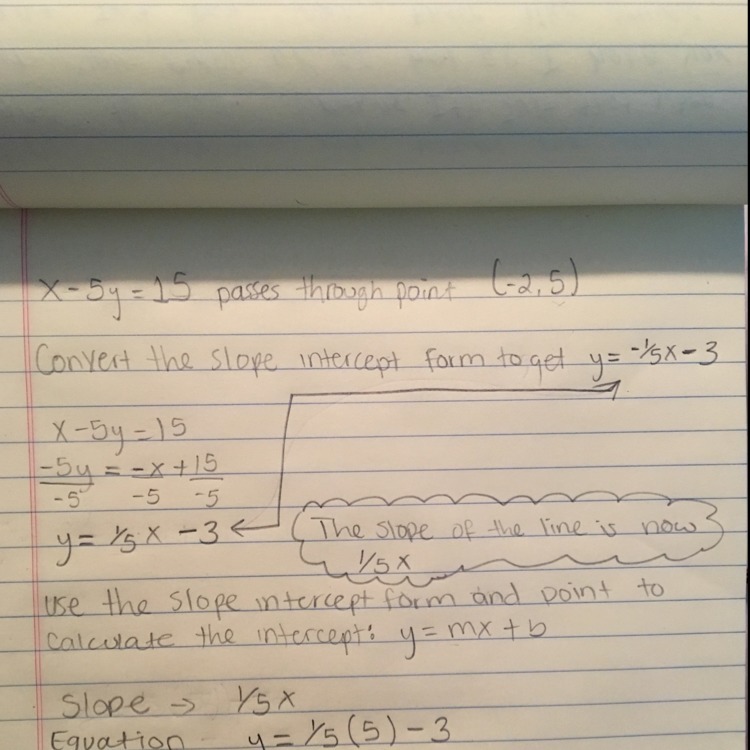 x-5y=15 passes through point (-2,5)
Convert the slope intercept form to get y=-1/5x-3
x-5y=15
-5y = -x + 15
-5 -5 -5
y= 1/5 x -3
The slope of the line is now
1/5 x
use the slope intercept form and point to
calculate the intercept: y=mx+b
Slope → 1/5 x
Equation y = 1/5 (5) - 3